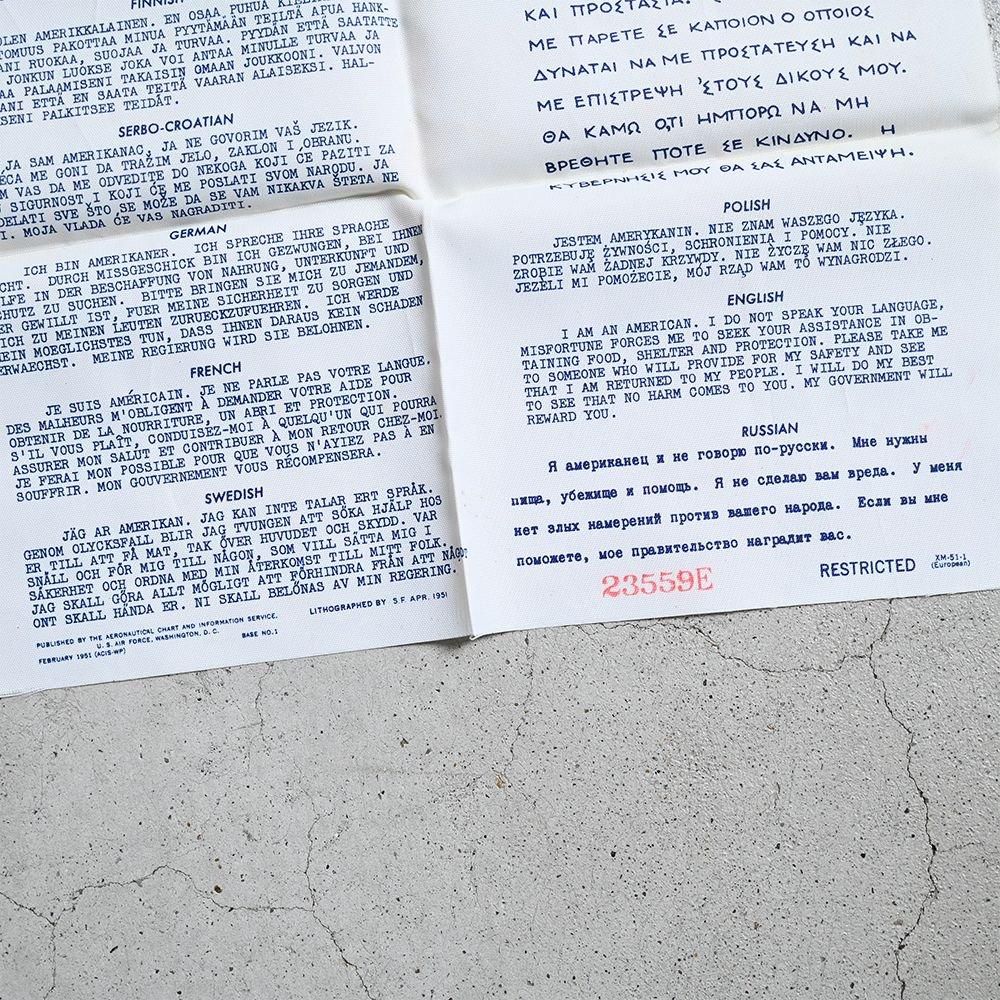 FINNISH
OLEN AMERIKKALAINEN. EN OSAA PUHUA
TOMUUS PAKOTTAA MINUA PYYTÄMÄÄN TEILTÄ APUA HANK-
ANI RUOKAA, SUOJAA JA TURVAA. PYYDÄN ETTÄ SAATATTE
JONKUN LUOKSE JOKA VOI ANTAA MINULLE TURVAA JA
AA PALAAMISENI TAKAISIN OMAAN JOUKKOONI. VALVON
ANI ETTÄ EN SAATA TEITÄ VAARAN ALAISEKSI. HAL-
SENI PALKITSEE TEIDÄT.
SERBO-CROATIAN
JA SAM AMERIKANAC, JA NE GOVORIM VAŠ JEZIK.
EĆA ME GONI DA TRAŽIM JELO, ZAKLON I OBRANU.
M VAS DA ME ODVEDITE DO NEKOGA KOJI ĆE PAZITI ZA
U SIGURNOST I KOJI ĆE ME POSLATI SVOM NARODU. JA
DELATI SVE ŠTO SE MOŽE DA SE VAM NIKAKVA ŠTETA NE
I. MOJA VLADA ĆE VAS NAGRADITI.
GERMAN
ICH BIN AMERIKANER. ICH SPRECHE IHRE SPRACHE
CHT. DURCH MISSGESCHICK BIN ICH GEZWUNGEN, BEI IHNEN
LFE IN DER BESCHAFFUNG VON NAHRUNG, UNTERKUNFT UND
HUTZ ZU SUCHEN. BITTE BRINGEN SIE MICH ZU JEMANDEM,
ER GEWILLT IST, FUER MEINE SICHERHEIT ZU SORGEN UND
ICH ZU MEINEN LEUTEN ZURUECKZUFUEHREN. ICH WERDE
EIN MOEGLICHSTES TUN, DASS IHNEN DARAUS KEIN SCHADEN
ERWAECHST. MEINE REGIERUNG WIRD SIE BELOHNEN.
FRENCH
JE SUIS AMÉRICAIN. JE NE PARLE PAS VOTRE LANGUE.
DES MALHEURS M'OBLIGENT À DEMANDER VOTRE AIDE POUR
OBTENIR DE LA NOURRITURE, UN ABRI ET PROTECTION.
S'IL VOUS PLAÎT, CONDUISEZ-MOI À QUELQU'UN QUI POURRA
ASSURER MON SALUT ET CONTRIBUER À MON RETOUR CHEZ-MOI.
JE FERAI MON POSSIBLE POUR QUE VOUS N'AYIEZ PAS À EN
SOUFFRIR. MON GOUVERNEMENT VOUS RÉCOMPENSERA.
SWEDISH
JÄG AR AMERIKAN. JAG KAN INTE TALAR ERT SPRÅK.
GENOM OLYCKSFALL BLIR JAG TVUNGEN ATT SÖKA HJÄLP HOS
ER TILL ATT FÅ MAT, TAK ÖVER HUVUDET OCH SKYDD. VAR
SNÄLL OCH FÖR MIG TILL NÅGON, SOM VILL SÄTTA MIG I
SÄKERHET OCH ORDNA MED MIN ÅTERKOMST TILL MITT FOLK.
JAG SKALL GÖRA ALLT MÖGLIGT ATT FÖRHINDRA FRÅN ATT NÅGOT
ONT SKALL HÄNDA ER. NI SKALL BELÖNAS AV MIN REGERING.
PUBLISHED BY THE AERONAUTICAL CHART AND INFORMATION SERVICE,
U. S. AIR FORCE, WASHINGTON, D. C. BASE NO.1
FEBRUARY 1951 (ACIS-WP)
LITHOGRAPHED BY S.F. APR. 1951
ΚΑΙ ΠΡΟΣΤΑΣΙΑ.
ΜΕ ΠΑΡΕΤΕ ΣΕ ΚΑΠΟΙΟΝ Ο ΟΠΟΙΟΣ
ΔΥΝΑΤΑΙ ΝΑ ΜΕ ΠΡΟΣΤΑΤΕΥΣΗ ΚΑΙ ΝΑ
ΜΕ ΕΠΙΣΤΡΕΨΗ 'ΣΤΟΥΣ ΔΙΚΟΥΣ ΜΟΥ.
ΘΑ ΚΑΜΩ Ο,ΤΙ ΗΜΠΟΡΩ ΝΑ ΜΗ
ΒΡΕΘΗΤΕ ΠΟΤΕ ΣΕ ΚΙΝΔΥΝΟ. Η
ΚΥΒΕΡΝΗΣΙΣ ΜΟΥ ΘΑ ΣΑΣ ΑΝΤΑΜΕΙΨΗ.
POLISH
JESTEM AMERYKANIN. NIE ZNAM WASZEGO JĘZYKA.
POTRZEBUJĘ ŻYWNOŚCI, SCHRONIENIA I POMOCY. NIE
ZROBIE WAM ŻADNEJ KRZYWDY. NIE ŻYCZĘ WAM NIC ZŁEGO.
JEŻELI MI POMOŻECIE, MÓJ RZĄD WAM TO WYNAGRODZI.
ENGLISH
I AM AN AMERICAN. I DO NOT SPEAK YOUR LANGUAGE,
MISFORTUNE FORCES ME TO SEEK YOUR ASSISTANCE IN OB-
TAINING FOOD, SHELTER AND PROTECTION. PLEASE TAKE ME
TO SOMEONE WHO WILL PROVIDE FOR MY SAFETY AND SEE
THAT I AM RETURNED TO MY PEOPLE. I WILL DO MY BEST
TO SEE THAT NO HARM COMES TO YOU. MY GOVERNMENT WILL
REWARD YOU.
RUSSIAN
Я американец и не говорю по-русски. Мне нужны
пища, убежище и помощь. Я не сделаю вам вреда. У меня
нет злых намерений против вашего народа. Если вы мне
поможете, мое правительство наградит вас.
23559E
RESTRICTED
XM-51-1
(European)